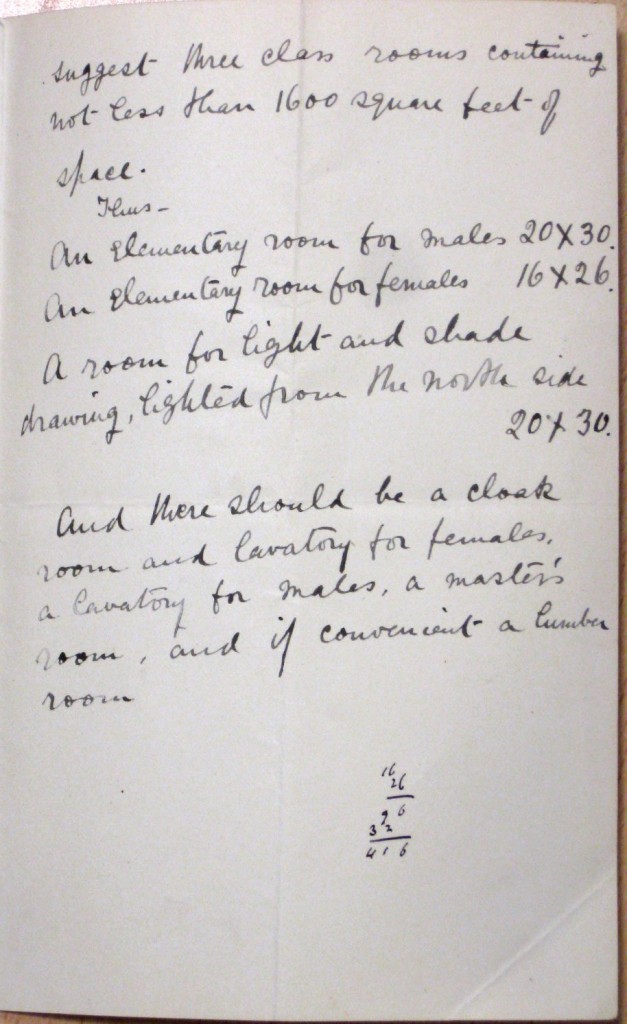 suggest three class rooms containing
not less than 1600 square feet of
space.
Thus –
An Elementary room for males 20 X 30.
An Elementary room for females 16 X 26.
A room for light and shade
drawing, lighted from the north side
20 X 30.
And there should be a cloak
room and lavatory for females,
a lavatory for males, a master's
room, and if convenient a lumber
room
16
26
96
32
416